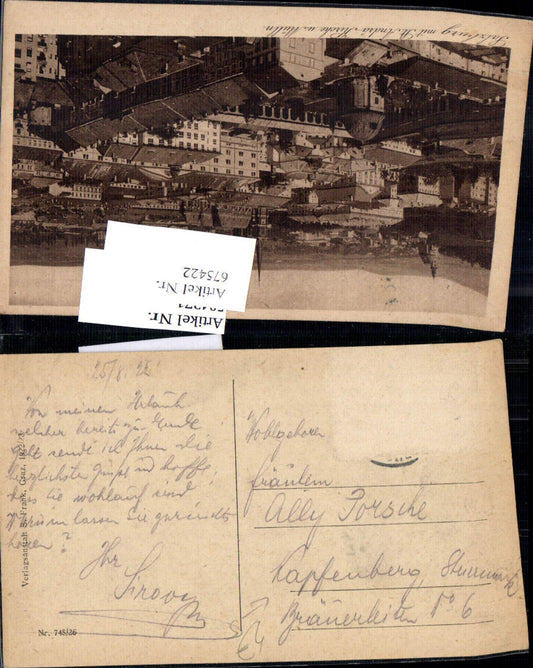 Salzburg mit St. Andrä Kirche u. Mülln.
Artikel Nr.
675422
Artikel Nr.
25/8. 22
Von meinem Urlaub
welcher bereits zu Ende
geht sende ich Ihnen die
herzlichsten Grüße und hoffe,
dass Sie wohlauf sind!
Warum lassen Sie garnichts
hören?
Ihr
Verlagsanstalt S. Frank, Graz.
Nr. 748/26
Wohlgeboren
Fräulein
Ally Porsche
Kapfenberg,
Bräuerleiten No 6